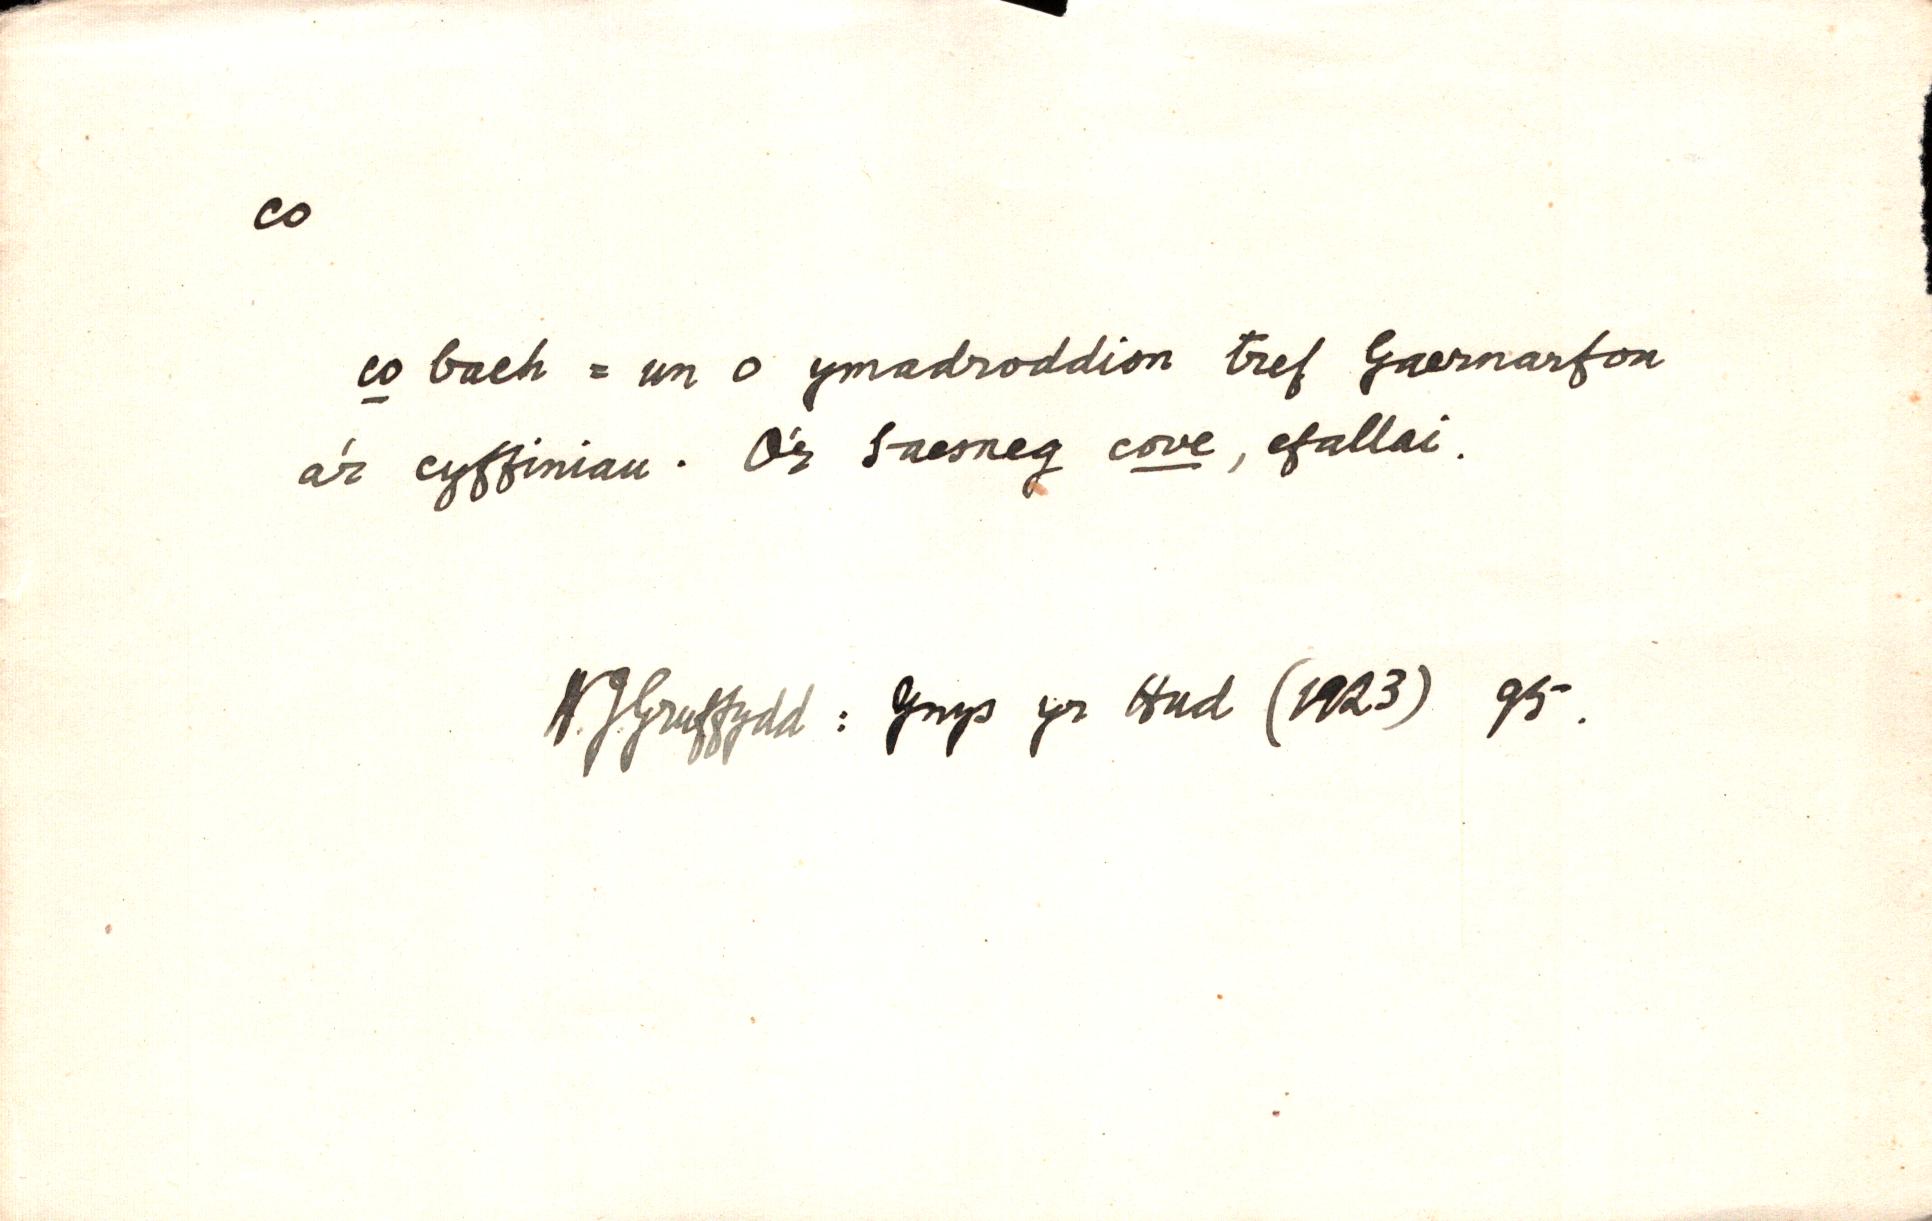 co
co bach = un o ymadroddion tref Gaernarfon
a'r cyffiniau. O'r Saesneg cove, efallai.
W.J.Gruffydd : Ynys yr Hud (1923) 95.